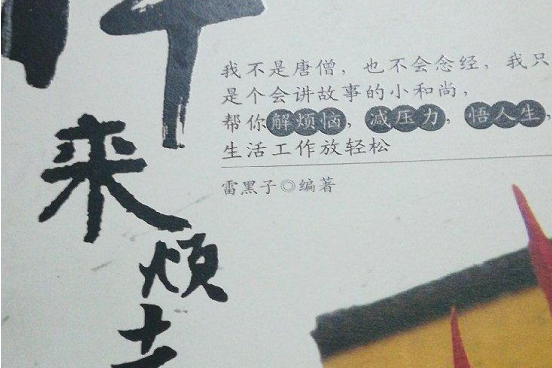 我不是唐僧，也不会念经，我只
是个会讲故事的小和尚，
帮你解烦恼，减压力，悟人生，
生活工作放轻松
雷黑子◎编著
来
烦